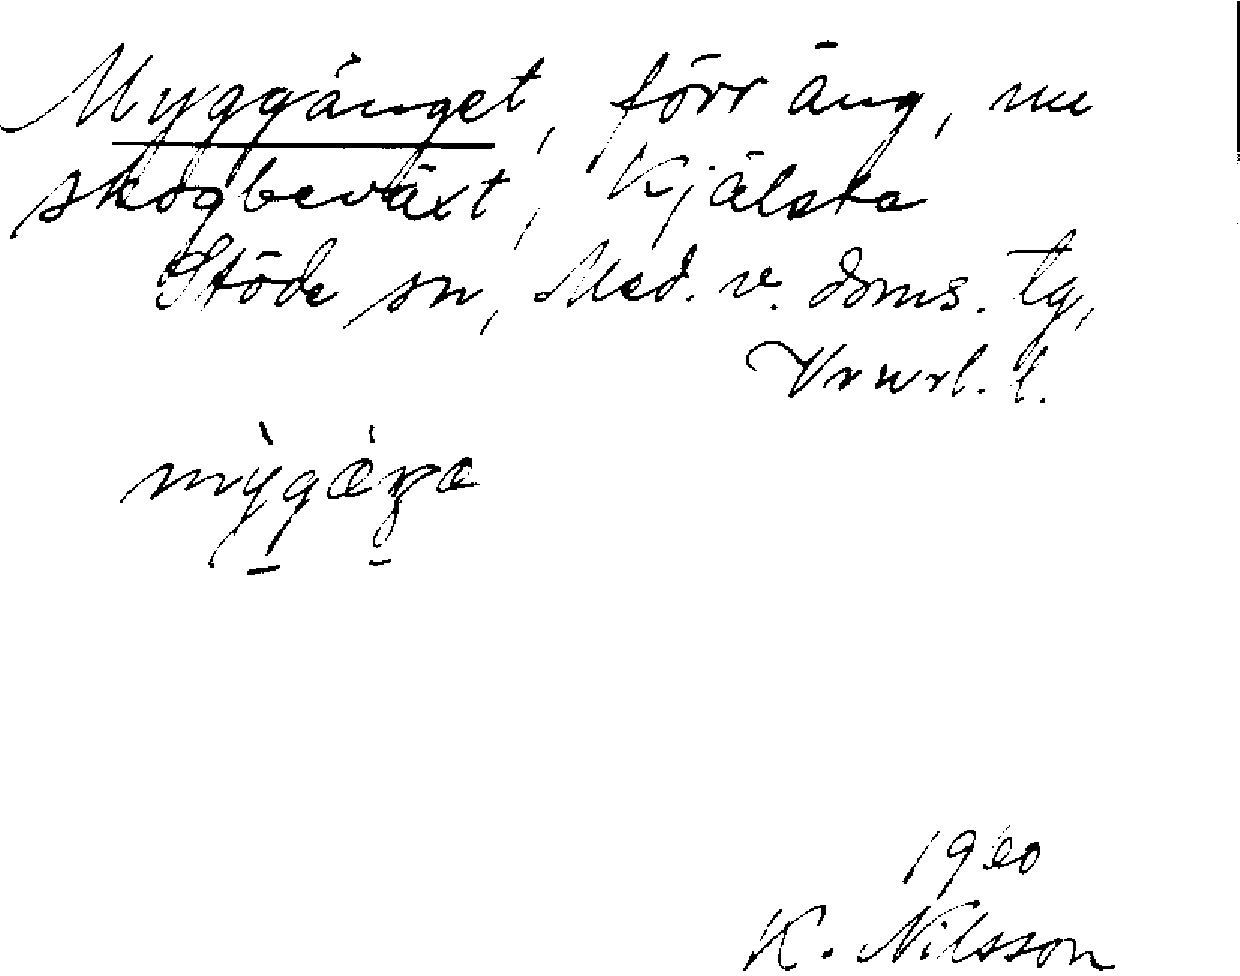 Myggänget, förr äng, nu
skogbeväxt, Kjälsta
Stöde sn, Med. v. doms. tg,
Vnrl. l.
K. Nilsson